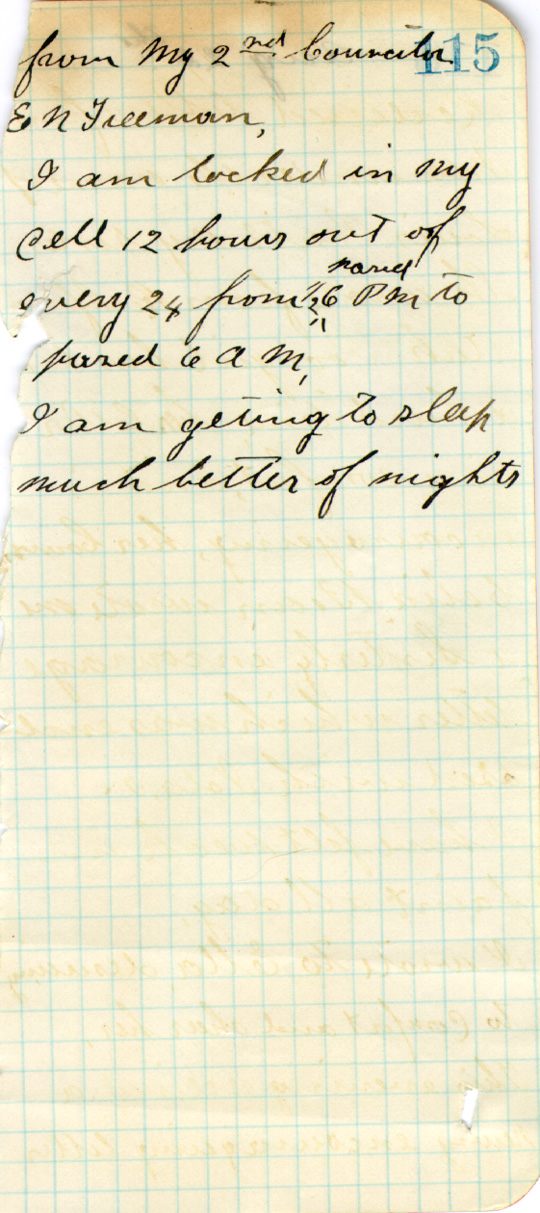 115
from My 2nd Councilor
E N Freeman,
I am locked in my
Cell 12 hours out of
every 24 from 1/2 6 PM to
6 A M,
I am geting to sleap
much better of nights